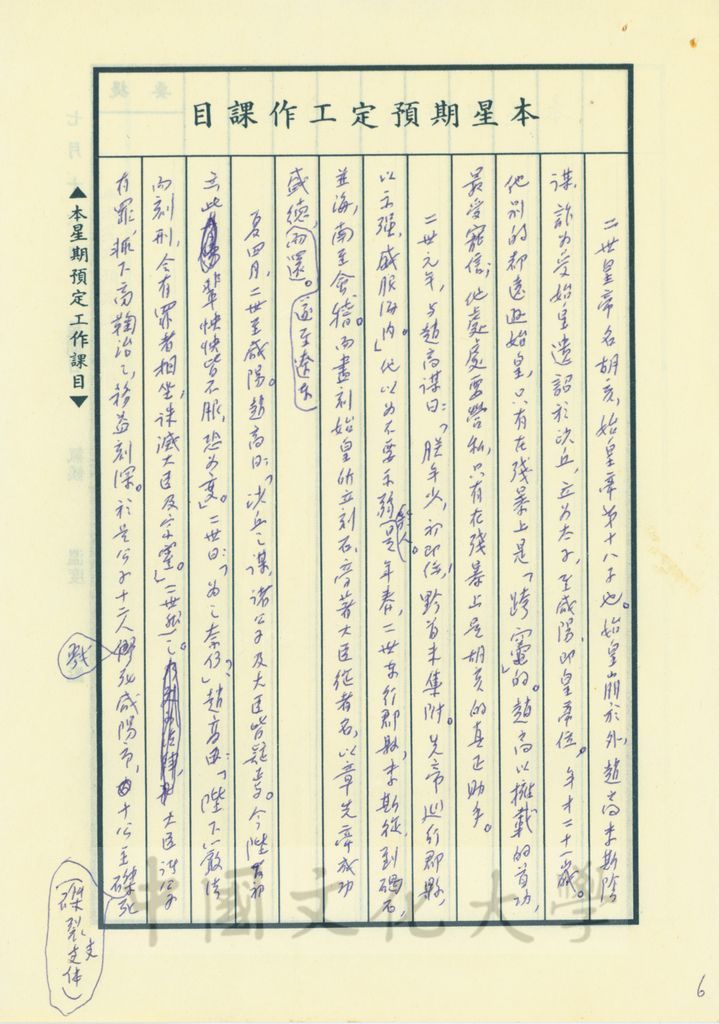 本星期預定工作課目
二世皇帝名胡亥，始皇帝第十八子也。始皇崩於外，趙高李斯陰
謀，詐為受始皇遺詔於沙丘，立為太子，至咸陽，即皇帝位。年才二十一歲。
他別的都遠遜始皇，只有在殘暴上是「跨竈」的。趙高以擁戴的首功，
最受寵信；他處處要營私，只有在殘暴上是胡亥的真正助手。
二世元年，與趙高謀曰：「朕年少，初即位，黔首未集附。先帝巡行郡縣，
以示強，威服海內。」他以為不要示弱於人。是年春，二世東行郡縣，李斯從。到碣石，
並海，南至會稽。而盡刻始皇所立刻石，旁著大臣從者名，以章先帝成功
盛德，而還。遂至遼東
夏四月，二世至咸陽。趙高曰：「沙丘之謀，諸公子及大臣皆疑焉。今陛下初
立，此輩怏怏皆不服，恐為變。」二世曰：「為之奈何？」趙高曰：「陛下嚴法
而刻刑，令有罪者相坐，誅滅大臣及宗室。」二世然之。大臣諸公子
有罪，輒下高鞠治之，務益刻深。於是公子十二人僇死咸陽市，十公主磔死
戮
（磔，裂支体）
支
▲本星期預定工作課目▼
中國文化大學
6